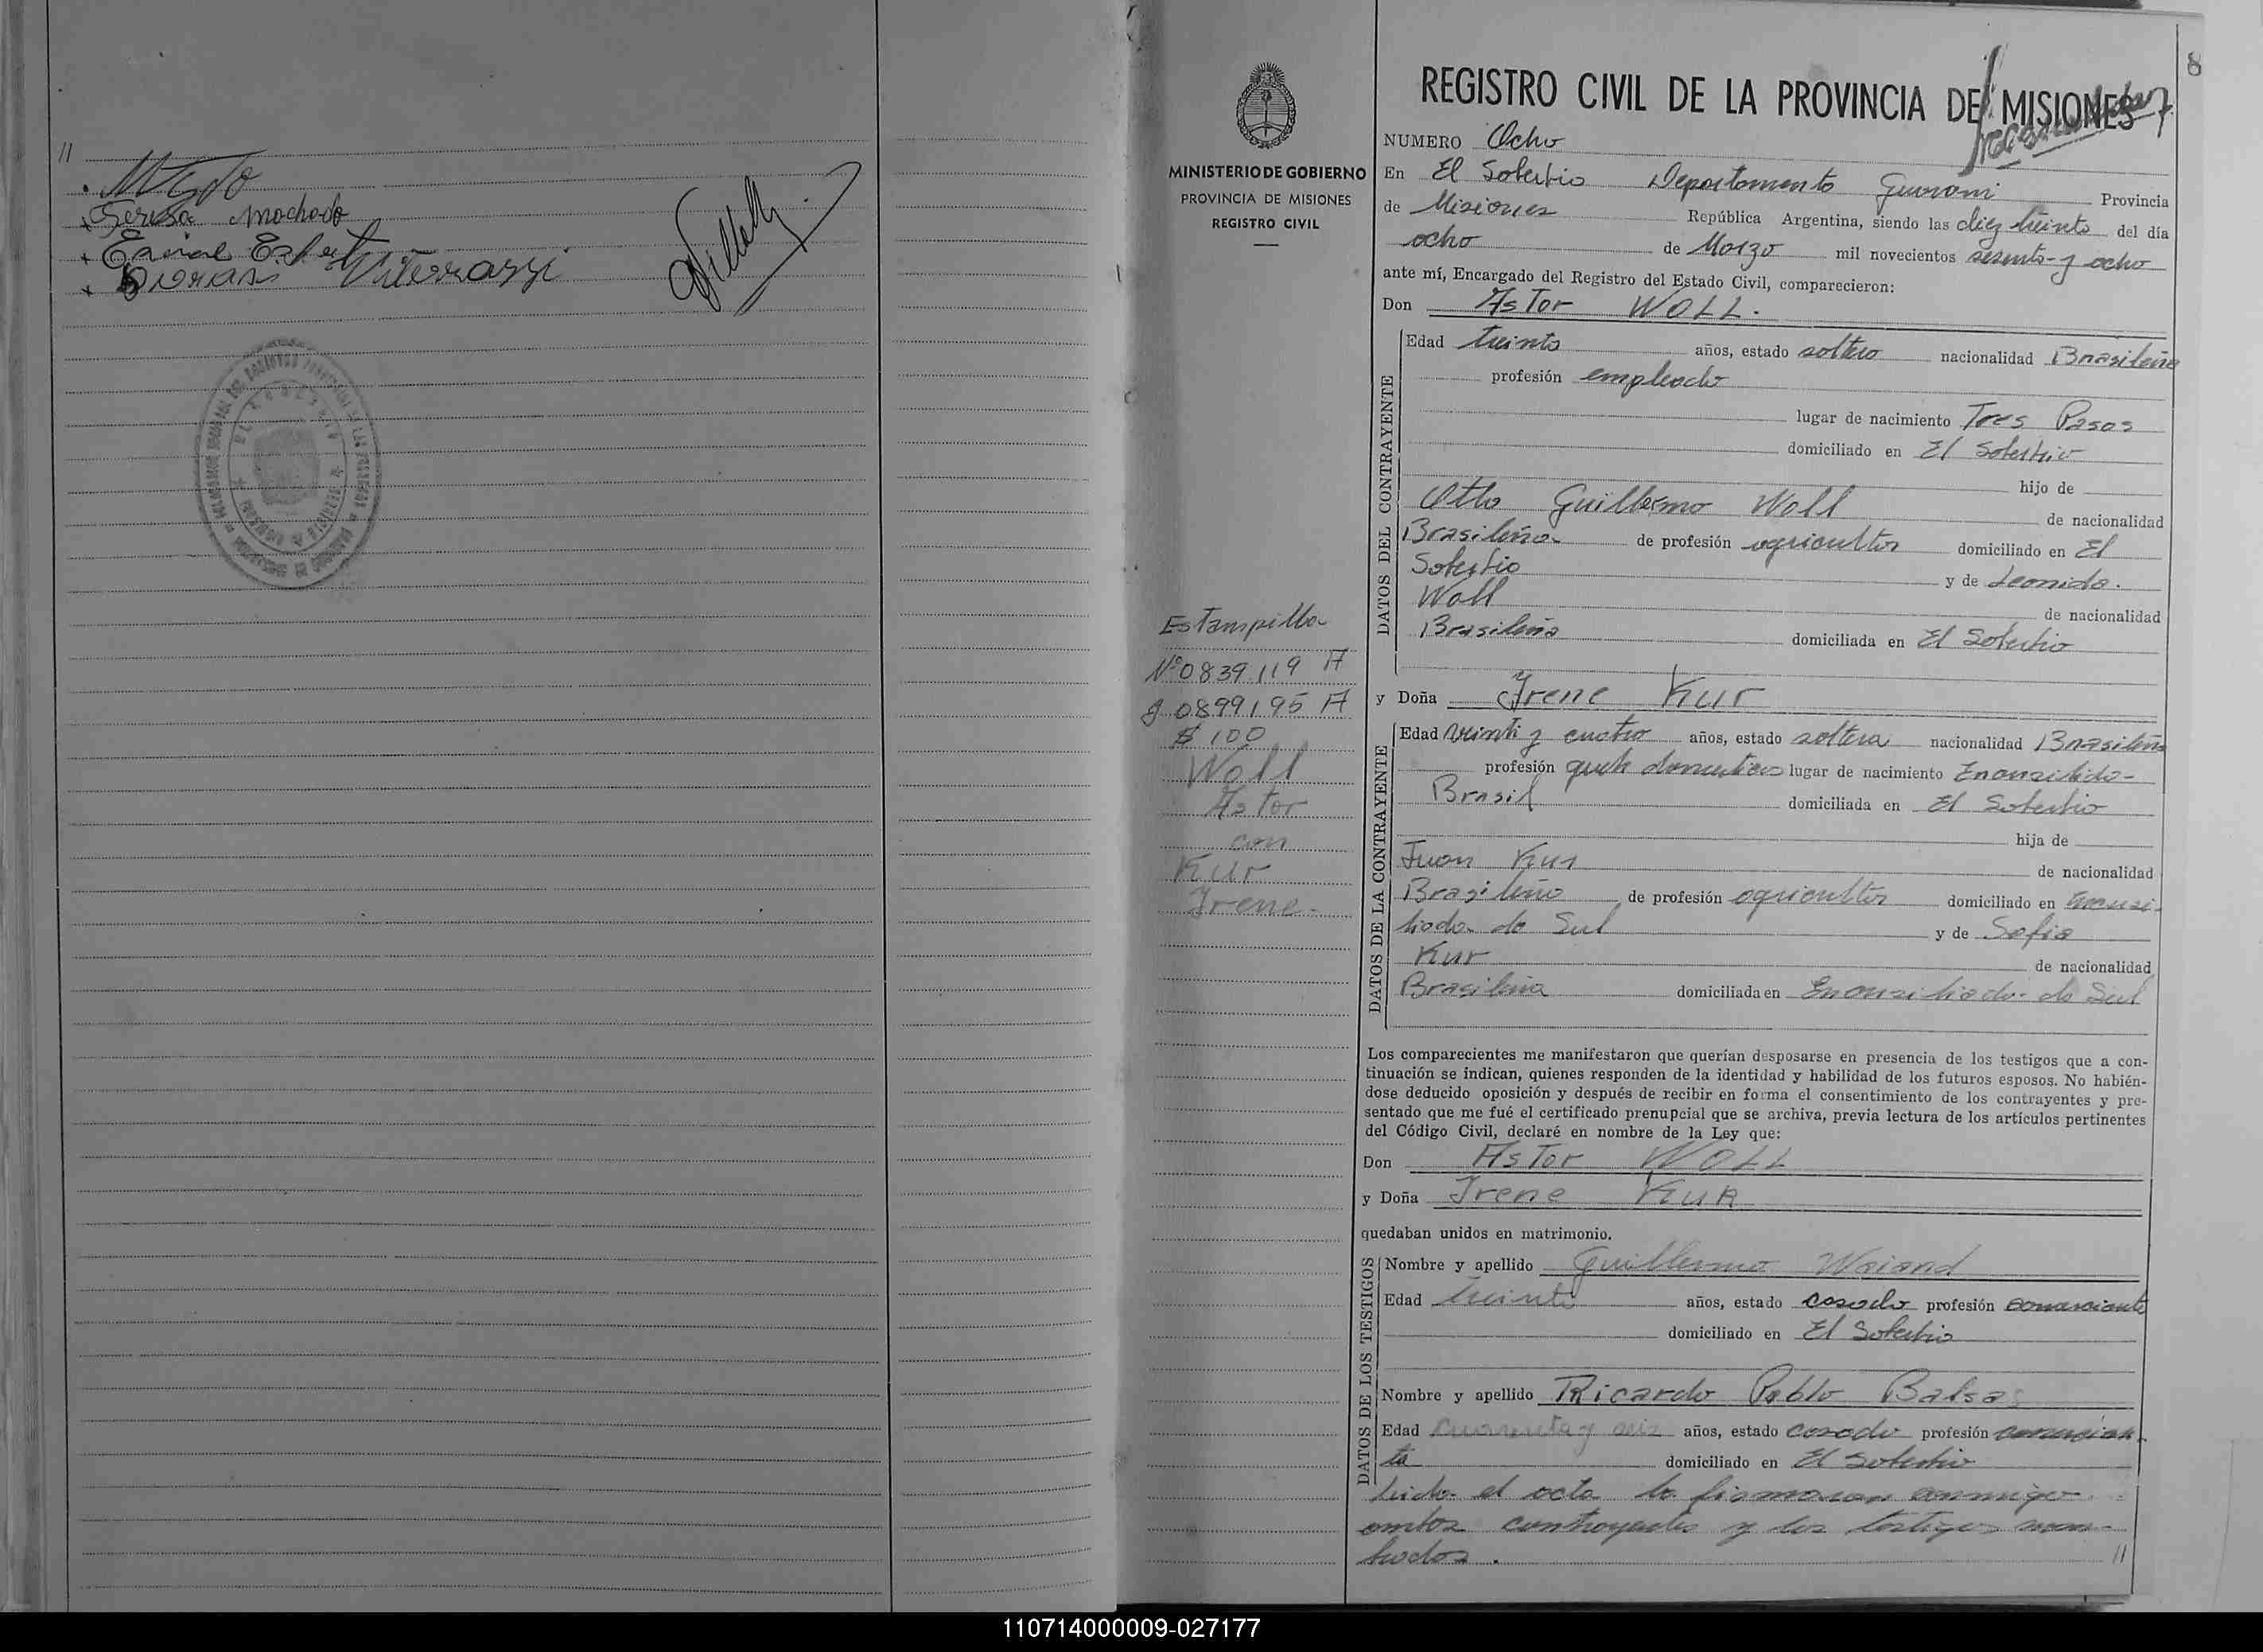 //
Teresa Machado
Viterrazzi
8
REGISTRO CIVIL DE LA PROVINCIA DE MISIONES
MINISTERIO DE GOBIERNO
PROVINCIA DE MISIONES
REGISTRO CIVIL
NUMERO Ocho
En El Soberbio Departamento Guarani Provincia
de Misiones República Argentina, siendo las diez treinta del día
ocho de Marzo mil novecientos sesenta y ocho
ante mí, Encargado del Registro del Estado Civil, comparecieron:
Don Astor WOLL.
DATOS DEL CONTRAYENTE
Edad treinta años, estado soltero nacionalidad Brasileña
profesión empleado
lugar de nacimiento Tres Pasos
domiciliado en El Soberbio
hijo de
Otto Guillermo Woll de nacionalidad
Brasileña de profesión agricultor domiciliado en El
Soberbio y de Leonida
Woll de nacionalidad
Brasileña domiciliada en El Soberbio
Estampilla
Nº 0839119 A
y 0899195 A
$ 100
Woll
Astor
con
Kur
Irene-
y Doña Irene Kur
DATOS DE LA CONTRAYENTE
Edad veinti y cuatro años, estado soltera nacionalidad Brasileña
profesión queh domesticos lugar de nacimiento
Brasil domiciliada en El Soberbio
hija de
Juan Kur de nacionalidad
Brasileño de profesión agricultor domiciliado en
do Sul y de Sofia
Kur de nacionalidad
Brasileña domiciliada en do Sul
Los comparecientes me manifestaron que querían desposarse en presencia de los testigos que a con-
tinuación se indican, quienes responden de la identidad y habilidad de los futuros esposos. No habién-
dose deducido oposición y después de recibir en forma el consentimiento de los contrayentes y pre-
sentado que me fué el certificado prenupcial que se archiva, previa lectura de los artículos pertinentes
del Código Civil, declaré en nombre de la Ley que:
Don Astor WOLL
y Doña Irene KUR
quedaban unidos en matrimonio.
DATOS DE LOS TESTIGOS
Nombre y apellido Guillermo Waiand
Edad treinta años, estado casado profesión comerciante
domiciliado en El Soberbio
Nombre y apellido Ricardo Pablo Balsa
Edad cuarenta y seis años, estado casado profesión comercian-
te domiciliado en El Soberbio
Leida el acta la firmaran conmigo
ambos contrayentes y los testigos nom-
brados. //
110714000009-027177